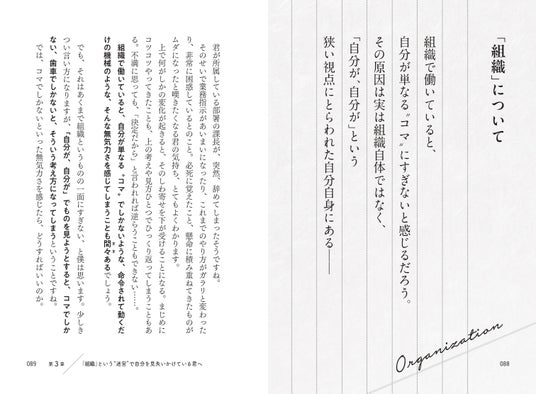 「組織」について
組織で働いていると、
自分が単なる“コマ”にすぎないと感じるだろう。
その原因は実は組織自体ではなく、
「自分が、自分が」という
狭い視点にとらわれた自分自身にある――
Organization
088
君が所属している部署の課長が、突然、辞めてしまったそうですね。
そのせいで業務指示があいまいになったり、これまでのやり方がガラリと変わった
り、非常に困惑しているとのこと。必死に覚えたこと、懸命に積み重ねてきたものが
ムダになったと嘆きたくなる君の気持ち、とてもよくわかります。
上で何がしかの変化が起きると、そのしわ寄せを下が受けることになる。まじめに
コツコツやってきたことも、上の考えや見方ひとつでひっくり返ってしまうこともあ
る。不満に思っても、「決定だから」と言われれば逆らうこともできない……。
組織で働いていると、自分が単なる“コマ”でしかないような、命令されて動くだ
けの機械のような、そんな無気力さを感じてしまうことも間々あるでしょう。
でも、それはあくまで組織というものの一面にすぎない、と僕は思います。少しき
つい言い方になりますが、「自分が、自分が」でものを見ようとすると、コマでしか
ない、歯車でしかないと、そういう考え方になってしまうということですね。
では、コマでしかないといった無気力さを感じたら、どうすればいいのか。
089
第3章
「組織」という“迷宮”で自分を見失いかけている君へ